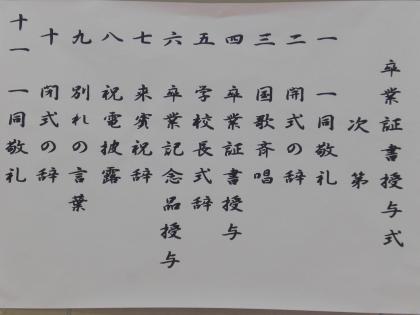 卒業証書授与式
次第
一 一同敬礼
二 開式の辞
三 国歌斉唱
四 卒業証書授与
五 学校長式辞
六 卒業記念品授与
七 来賓祝辞
八 祝電披露
九 別れの言葉
十 閉式の辞
十一 一同敬礼